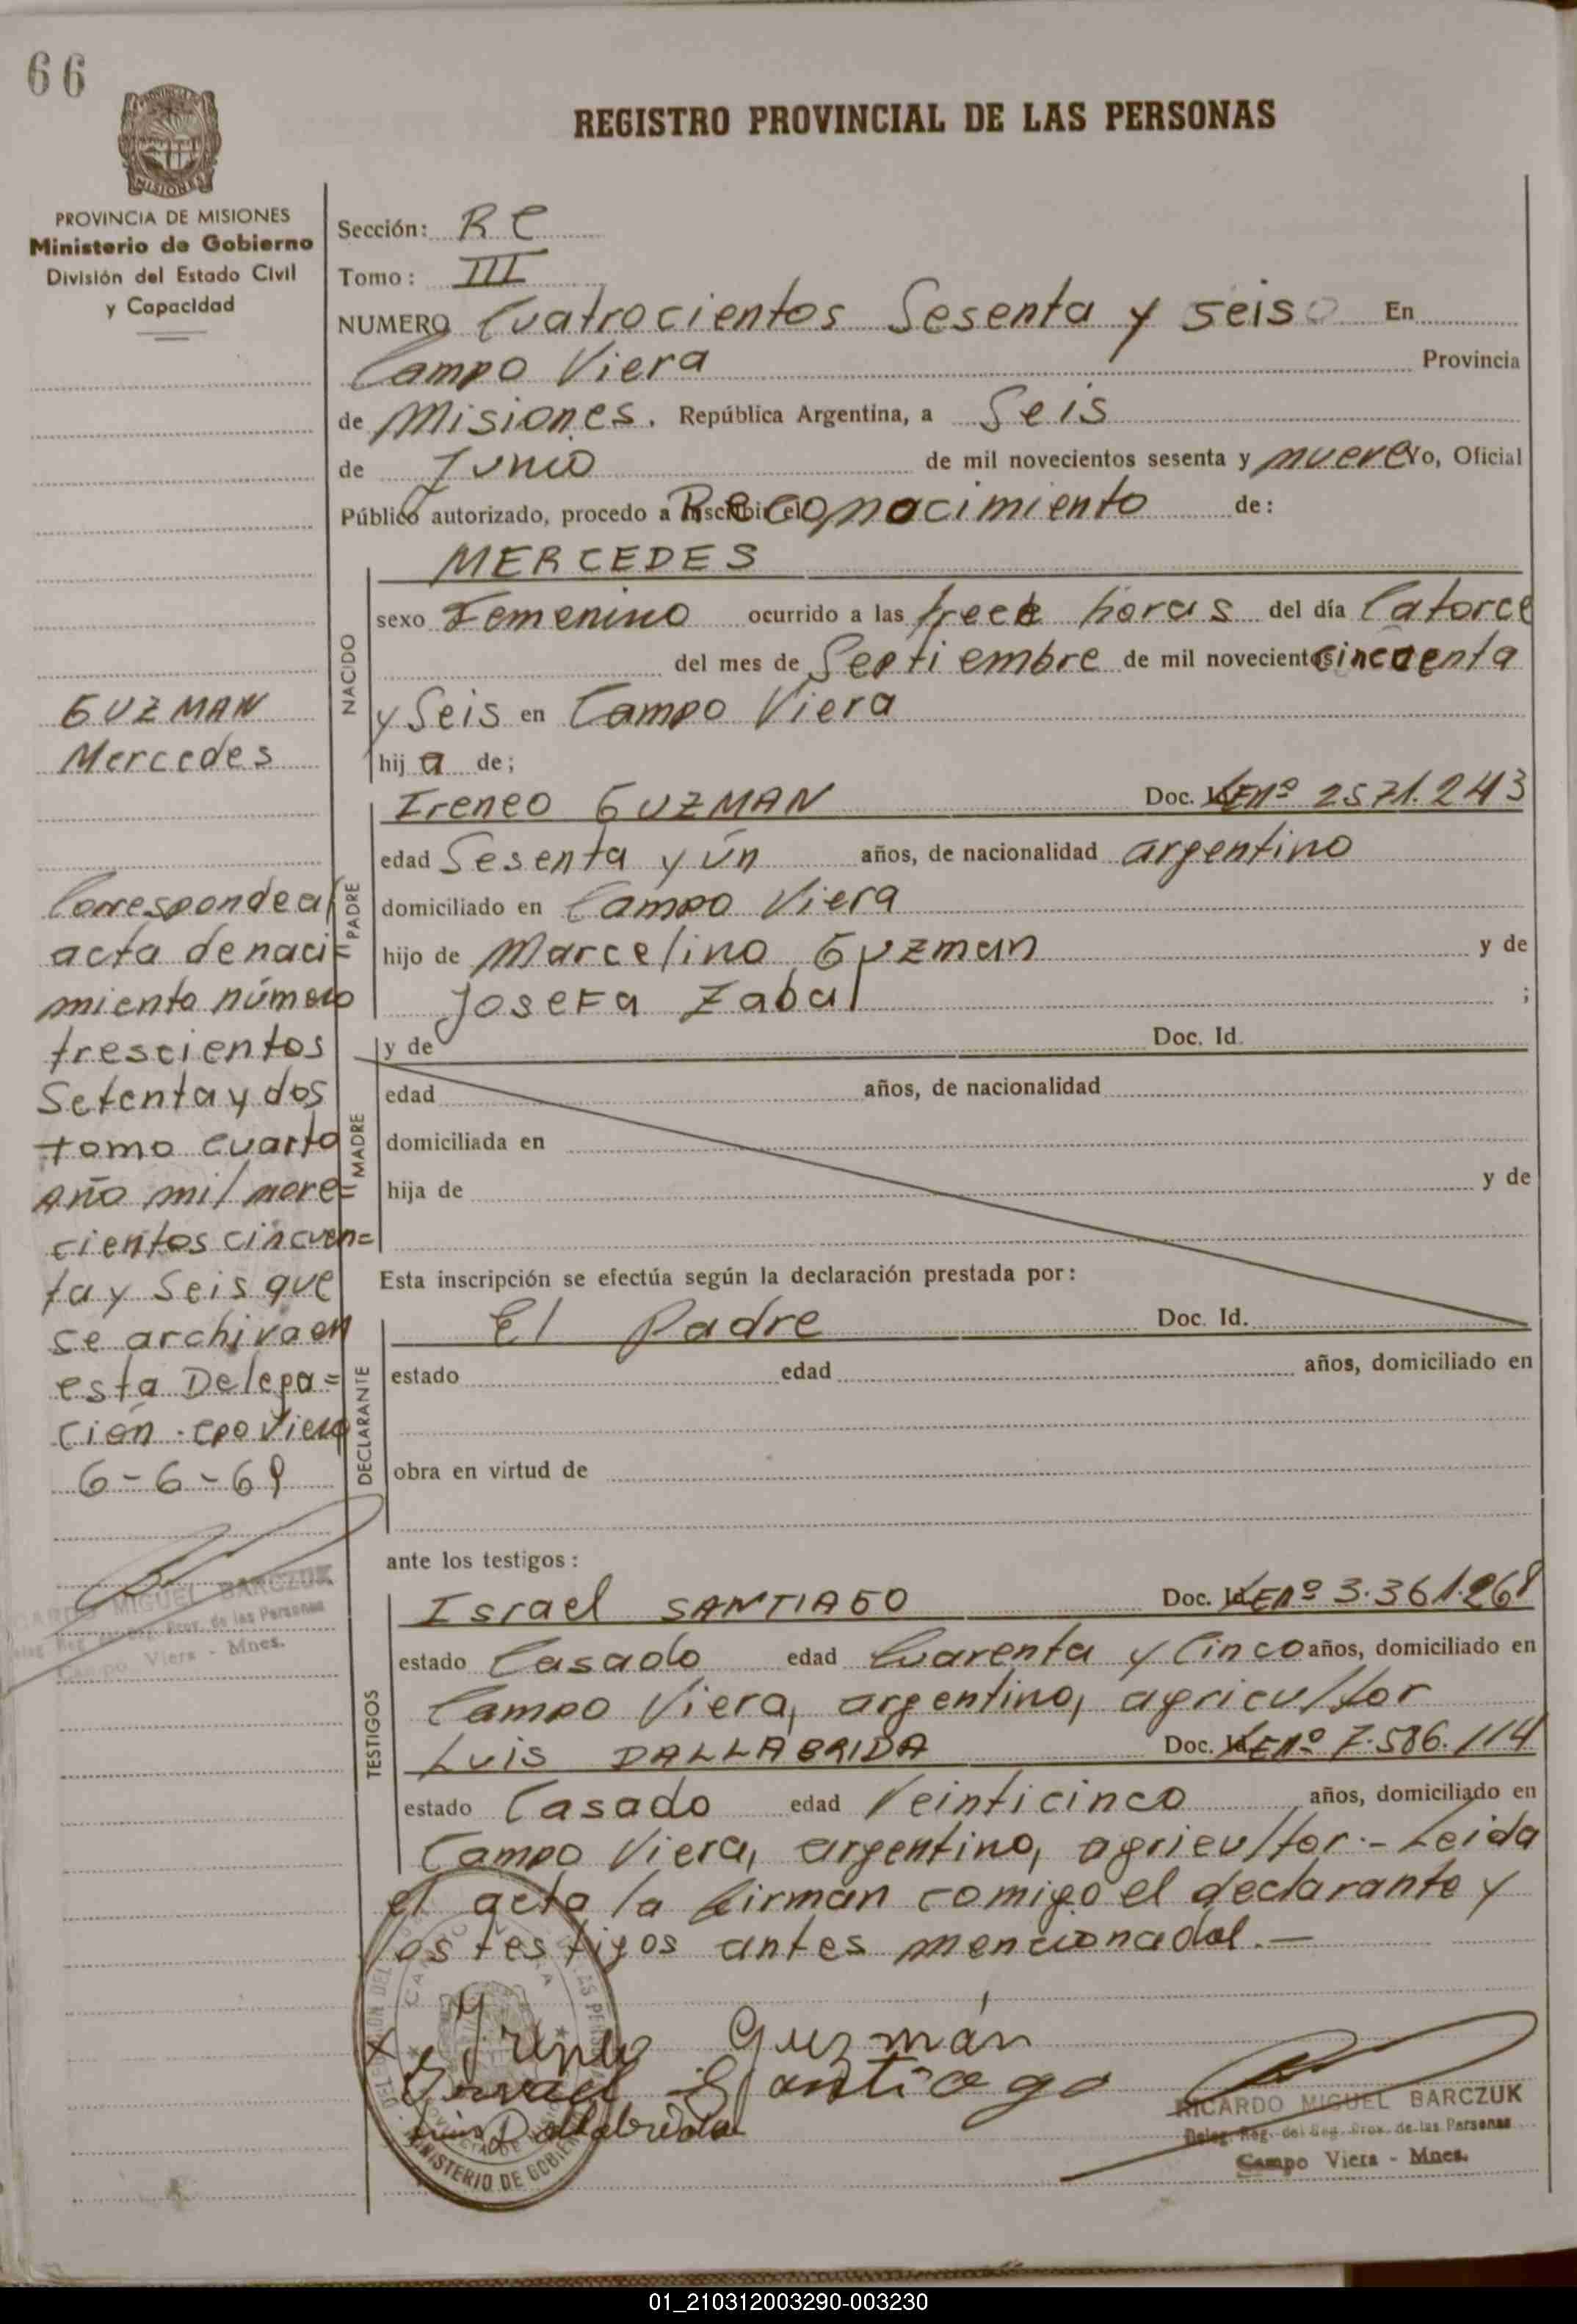 66
REGISTRO PROVINCIAL DE LAS PERSONAS
MISIONES
PROVINCIA DE MISIONES
Ministerio de Gobierno
División del Estado Civil
y Capacidad
Sección: R C
Tomo: III
NUMERO Cuatrocientos Sesenta y seis En
Campo Viera Provincia
de Misiones. República Argentina, a Seis
de Junio de mil novecientos sesenta y nueve Yo, Oficial
Público autorizado, procedo a inscribir el Reconocimiento de:
MERCEDES
NACIDO
sexo Femenino ocurrido a las trece horas del día Catorce
del mes de Septiembre de mil novecientos cincuenta
y Seis en Campo Viera
hij a de;
GUZMAN
Mercedes
PADRE
Ireneo GUZMAN Doc. LE nº 2571.243
edad Sesenta y ún años, de nacionalidad argentino
domiciliado en Campo Viera
hijo de Marcelino Guzman y de
Josefa Zabal ;
MADRE
y de Doc. Id.
edad años, de nacionalidad
domiciliada en
hija de y de
Corresponde al
acta de naci=
miento número
trescientos
Setenta y dos
Tomo Cuarto
Año mil nove=
cientos cincuen=
ta y Seis que
se archiva en
esta Delega=
ción. Cpo Viera
6-6-69
RICARDO MIGUEL BARCZUK
Deleg. Reg. del Reg. Prov. de las Personas
Campo Viera - Mnes.
Esta inscripción se efectúa según la declaración prestada por:
DECLARANTE
El Padre Doc. Id.
estado edad años, domiciliado en
obra en virtud de
ante los testigos:
TESTIGOS
Israel SANTIAGO Doc. Id. LE nº 3.361.268
estado Casado edad Cuarenta y Cinco años, domiciliado en
Campo Viera, argentino, agricultor
Luis DALLABRIDA Doc. Id. LE nº 7.586.114
estado Casado edad Veinticinco años, domiciliado en
Campo Viera, argentino, agricultor.- Leida
el acta la firman comigo el declarante y
los testigos antes mencionados.-
X Ireneo Guzmán
Israel Santiago
Luis Dallabrida
MINISTERIO DE GOBIERNO
RICARDO MIGUEL BARCZUK
Deleg. Reg. del Reg. Prov. de las Personas
Campo Viera - Mnes.
01_210312003290-003230